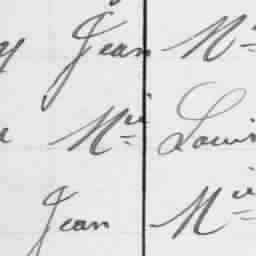 y Jean M
e Mie Louis
Jean Mie